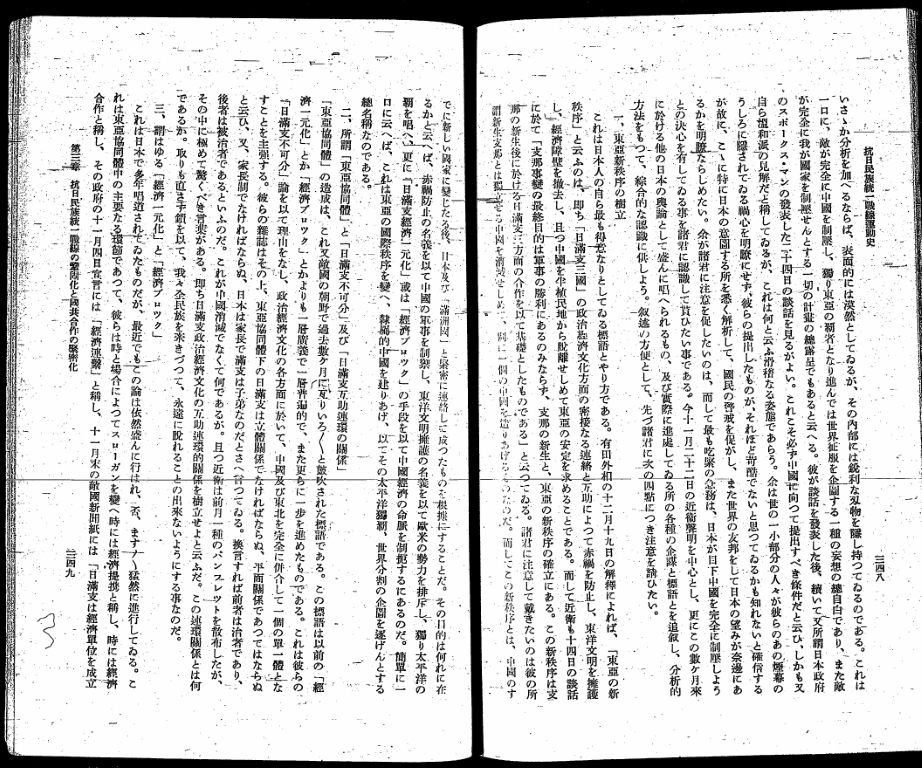 抗日民族統一戰線運動史
三四八
いさゝか分析を加へるならば、表面的には漠然としてゐるが、その内部には銳利な刃物を隱し持つてゐるのである。これは
一口に、敵が完全に中國を制壓し、獨り東亞の覇者となり進んでは世界征服を企圖する一種の妄想の總自白であり、また敵
が完全に我が國家を制壓せんとする一切の計畫の總露呈でもあると云へる。彼が談話を發表した後、續いて又所謂日本政府
のスポークス・マンの發表した二十四日の談話を見るがよい。これこそ必ず中國に向つて提出すべき條件だと云ひ、しかも又
自ら溫和派の見解だと稱してゐるが、これは何と云ふ滑稽な姿態であらう。余は世の一小部分の人々が彼らのあの煙幕の
うしろに隱されてゐる禍心を明瞭にせず、彼らの提出したものが、それほど苛酷でないと思つてゐるかも知れないと確信する
が故に、こゝに特に日本の意圖する所を悉く解析して、國民の警戒を促がし、また世界の友邦をして日本の望みが奈邊にあ
るかを明瞭ならしめたい。余が諸君に注意を促したいのは、而して最も吃緊の急務は、日本が目下中國を完全に制壓しよう
との決心を有してゐる事を諸君に認識して貰ひたい事である。今十一月二十二日の近衞聲明を中心とし、更にこの數ケ月來
に於ける他の日本の輿論として盛んに唱へられるもの、及び實際に進處してゐる所の各種の企謀と標語とを追叙し、分析的
方法をもつて、綜合的な認識に供しよう。叙述の方便として、先づ諸君に次の四點につき注意を請ひたい。
一、東亞新秩序の樹立
これは日本人の自ら最も得意なりとしてゐる標語とやり方である。有田外相の十二月十九日の解釋によれば、「東亞の新
秩序」と云ふのは、卽ち「日滿支三國」の政治經濟文化方面の密接なる連絡と互助によつて赤禍を防止し、東洋文明を擁護
し、經濟障壁を撤去し、且つ中國を半植民地から脫離せしめて東亞の安定を求めることである。而して近衞も十四日の談話
に於て「支那事變の最終目的は軍事の勝利にあるのみならず、支那の新生と、東亞の新秩序の確立にある。この新秩序は支
那の新生後に於ける日滿支三方面の合作を以て基礎としたものである」と云つてゐる。諸君に注意して戴きたいのは彼の所
謂新生支那とは獨立せる中國を消滅せしめて、別に一個の中國を造りあげるとのだ。而してこの新秩序とは、中國のす
でに新しい國家に變じたる後、日本及び「滿洲國」と緊密に連絡して成つたものを根據にすることだ。その目的は何れに在
るかと云へば、赤禍防止の名義を以て中國の軍事を制禦し、東洋文明擁護の名義を以て歐米の勢力を排斥し、獨り太平洋の
覇を唱へ、更に「日滿支經濟一元化」或は「經濟ブロック」の手段を以て中國經濟の命脈を制扼するにあるのだ。簡單に一
口に云へば、これは東亞の國際秩序を變へ、隸屬的中國を建りあげ、以てその太平洋獨覇、世界分割の企圖を遂げんとする
總名稱なのである。
二、所謂「東亞協同體」と「日滿支不可分」及び「日滿支互助連環の關係」
「東亞協同體」の造成は、これ又敵國の朝野で過去數ケ月に亙りいろ〳〵と鼓吹された標語である。この標語は以前の「經
濟一元化」とか「經濟ブロック」とかよりも一層廣義で一層普遍的で、また更らに一步を進めたものである。これは彼らの
「日滿支不可分」論を以て理由をなし、政治經濟文化の各方面に於いて、中國及び東北を完全に併合して一個の單一體とな
すことを主張する。彼らの雜誌はその上、東亞協同體下の日滿支は立體關係でなければならぬ、平面關係であつてはならぬ
と云ひ、又、家長制でなければならぬ、日本は家長で滿支は子弟なのだとさへ言つてゐる。換言すれば前者は治者であり、
後者は被治者であるといふのだ。これが中國消滅でなくて何であるが。且つ近衞は前月一種のパンフレットを散布したが、
その中に極めて驚くべき言葉がある。卽ち日滿支政治經濟文化の互助連環的關係を樹立せよと云ふだ。この連環關係とは何
であるか。取りも直さず鎖を以て、我々全民族を牽きつつて、永遠に脫れることの出來ないようにする事なのだ。
三、謂はゆる「經濟一元化」と「經濟ブロック」
これは日本で多年唱道されてゐたものだが、最近でもこの論は依然盛んに行はれ、否、ます〳〵猛然に進行してゐる。こ
れは東亞協同體中の主要なる環節であつて、彼らは時と場合によつてスローガンを變へ時には經濟提携と稱し、時には經濟
合作と稱し、その政府の十一月四日宣言には「經濟連繫」と稱し、十一月末の敵國新聞紙には「日滿支は經濟單位を成立
第三章 抗日民族統一戰線の鞏固化と國共合作の緊密化
三四九
3